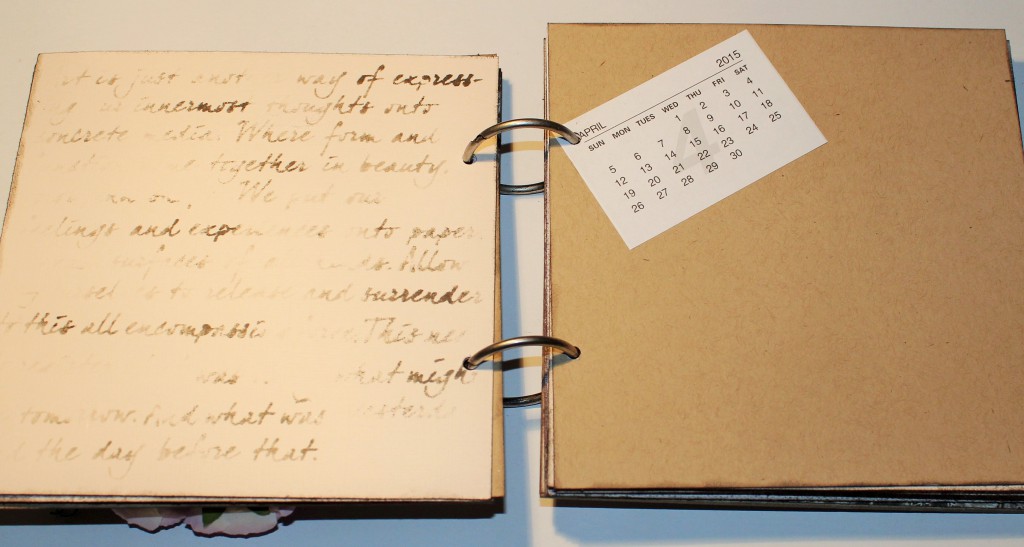 is just anot way of express-
innermost thoughts onto
concrete media. Where form and
together in beauty.
We put our
and experiences onto paper.
surfaces of minds. Allow
to release and surrender
to this all encompassi This
was... what migh
tomorrow. And what was yesterda
the day before that.
2015
APRIL
SUN MON TUES WED THU FRI SAT
1 2 3 4
5 6 7 8 9 10 11
12 13 14 15 16 17 18
19 20 21 22 23 24 25
26 27 28 29 30
4